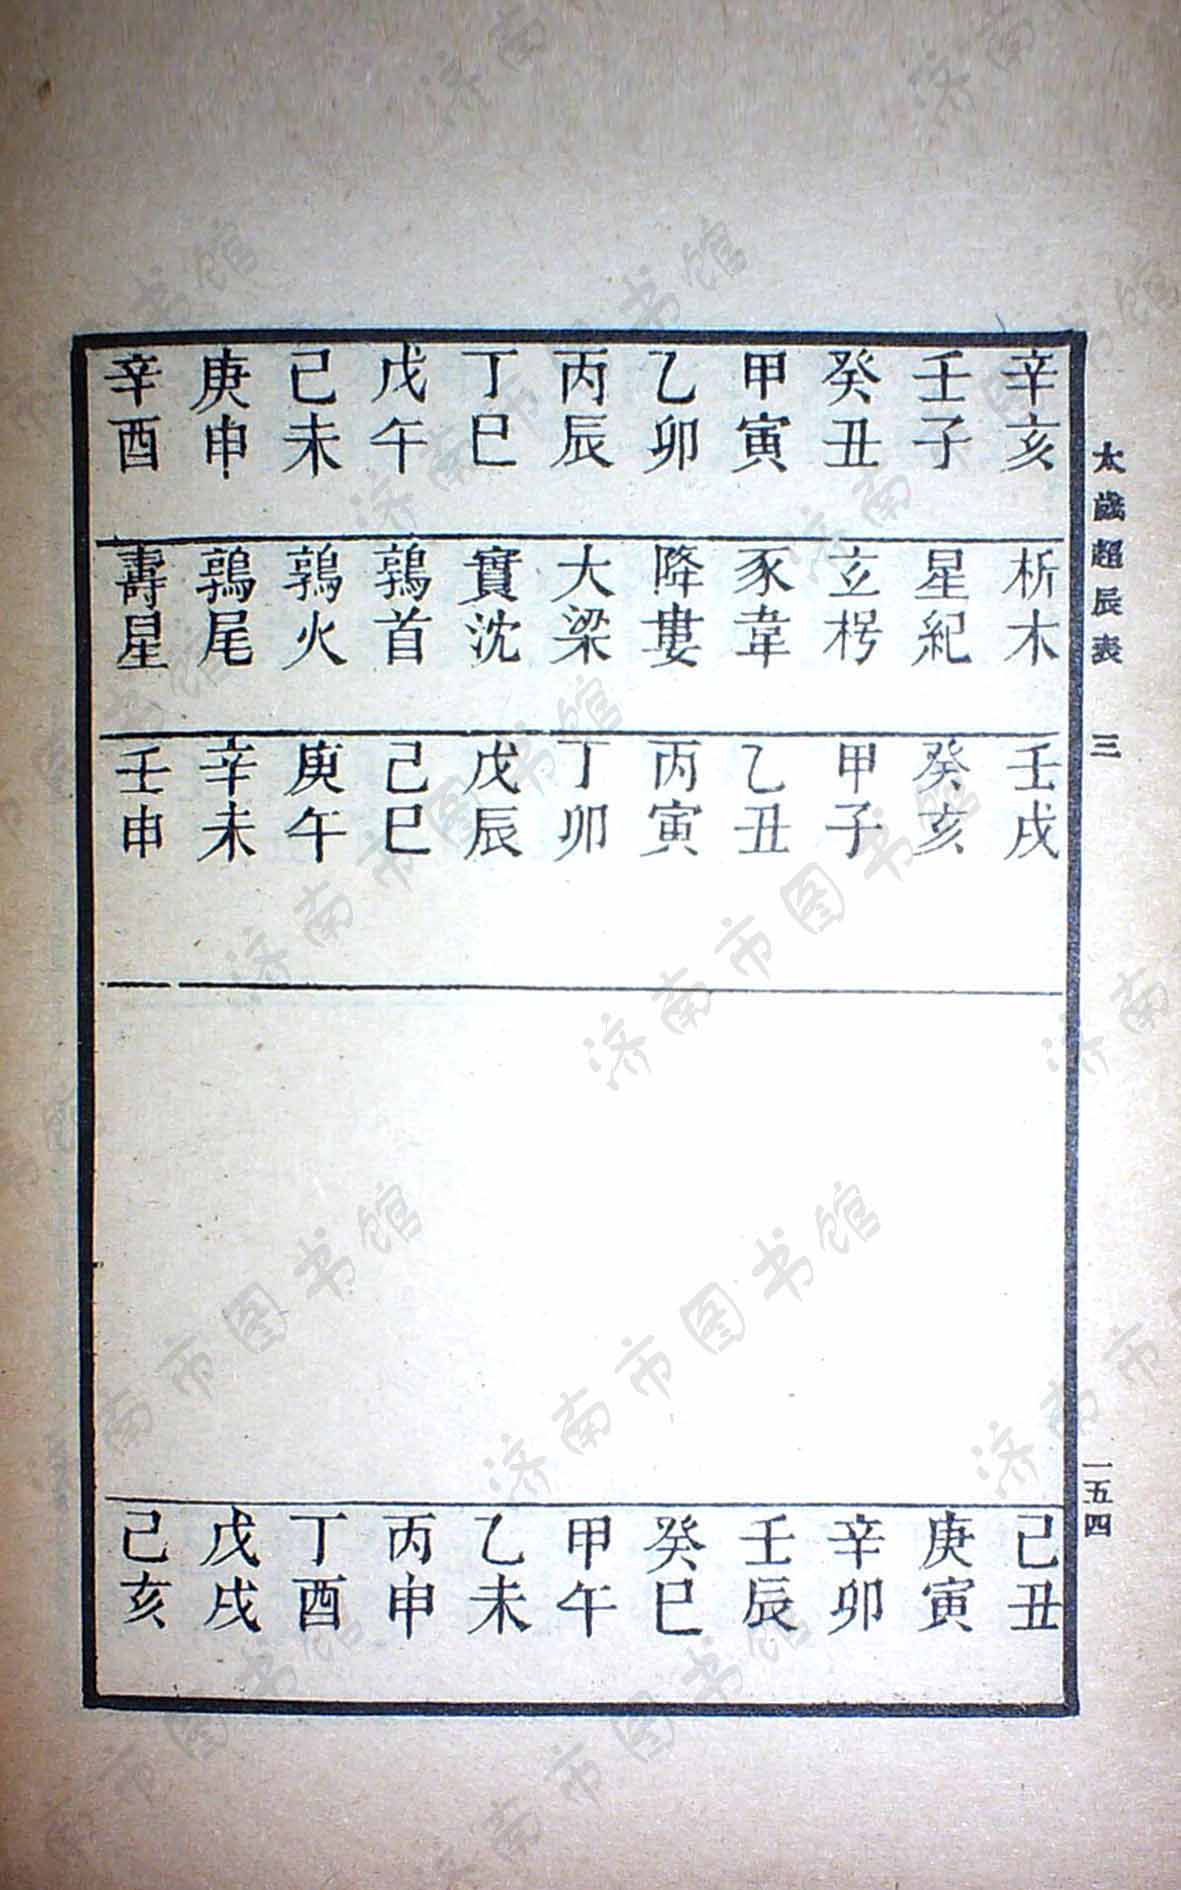 太歲超辰表 三 一五四
辛亥 壬子 癸丑 甲寅 乙卯 丙辰 丁巳 戊午 己未 庚申 辛酉
析木 星紀 玄枵 豕韋 降婁 大梁 實沈 鶉首 鶉火 鶉尾 壽星
壬戌 癸亥 甲子 乙丑 丙寅 丁卯 戊辰 己巳 庚午 辛未 壬申
己丑 庚寅 辛卯 壬辰 癸巳 甲午 乙未 丙申 丁酉 戊戌 己亥
济南市图书馆